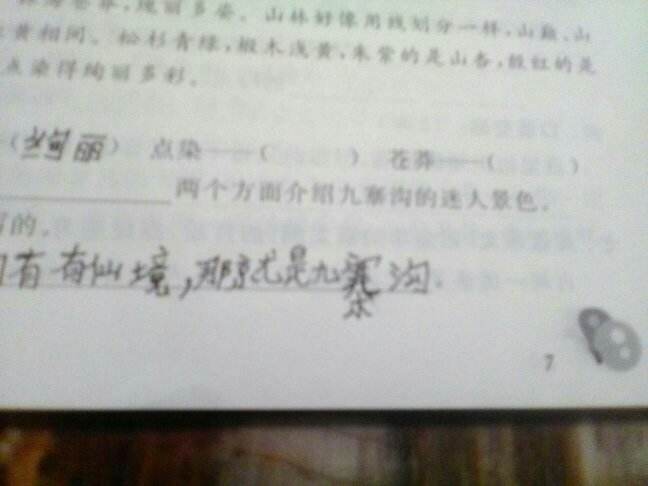 海苍莽,瑰丽多姿。山林好像用线划分一样,山巅、山
黄相间。松杉青绿,椴木浅黄,朱紫的是山杏,殷红的是
点染得绚丽多彩。
(绚丽) 点染——( ) 苍莽——( )
两个方面介绍九寨沟的迷人景色。
的。
有仙境,那就是九寨沟.
7